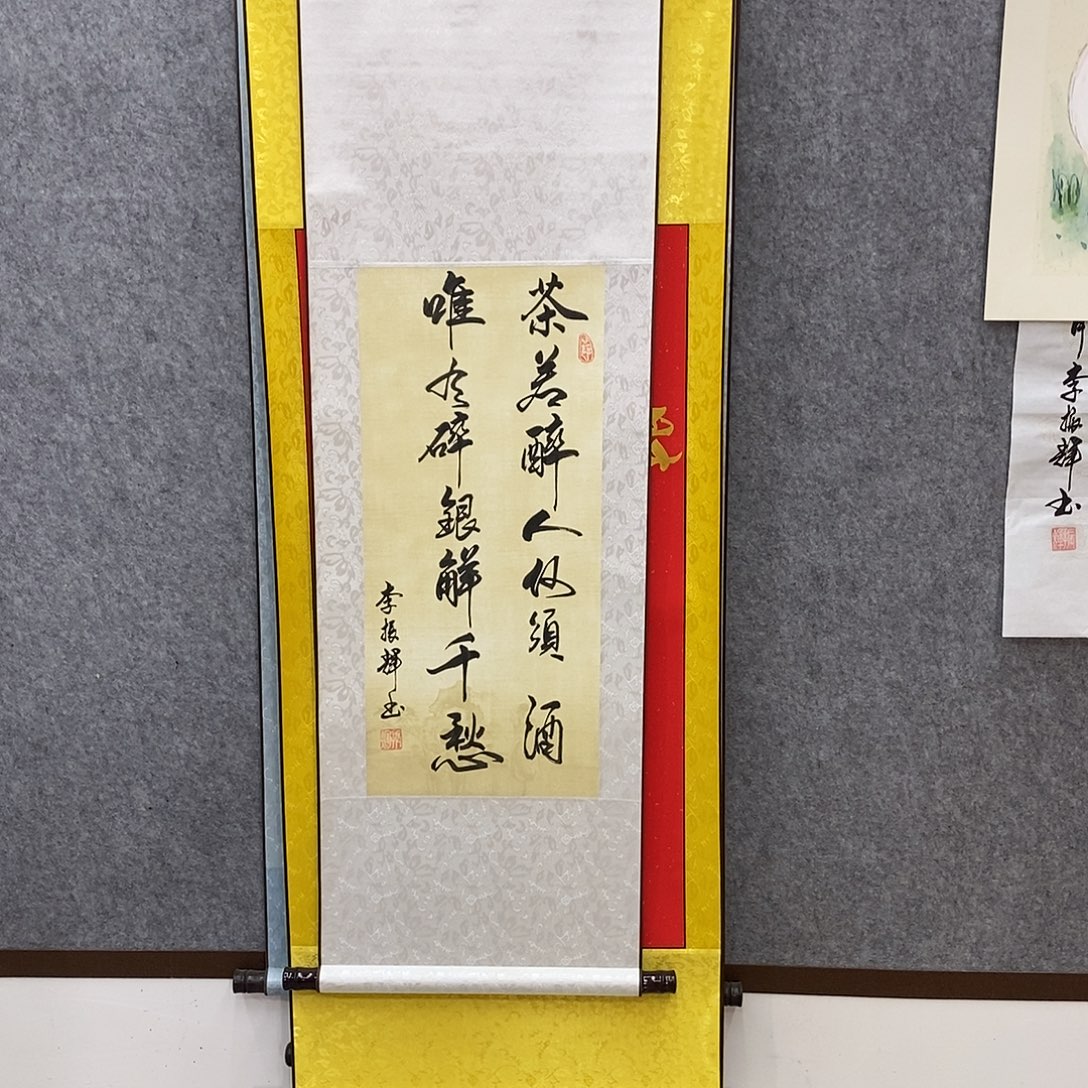 茶若醉人何須酒
唯有碎銀解千愁
李振輝书
李振輝书